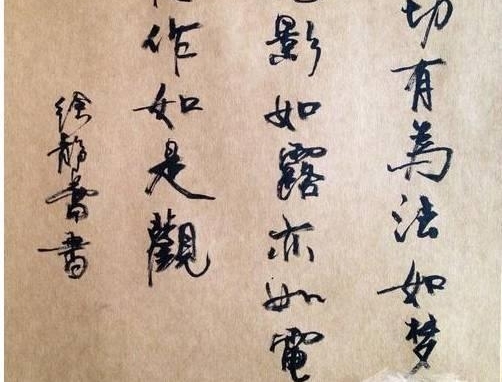 切有為法如梦
影如露亦如電
作如是觀
徐静蕾書